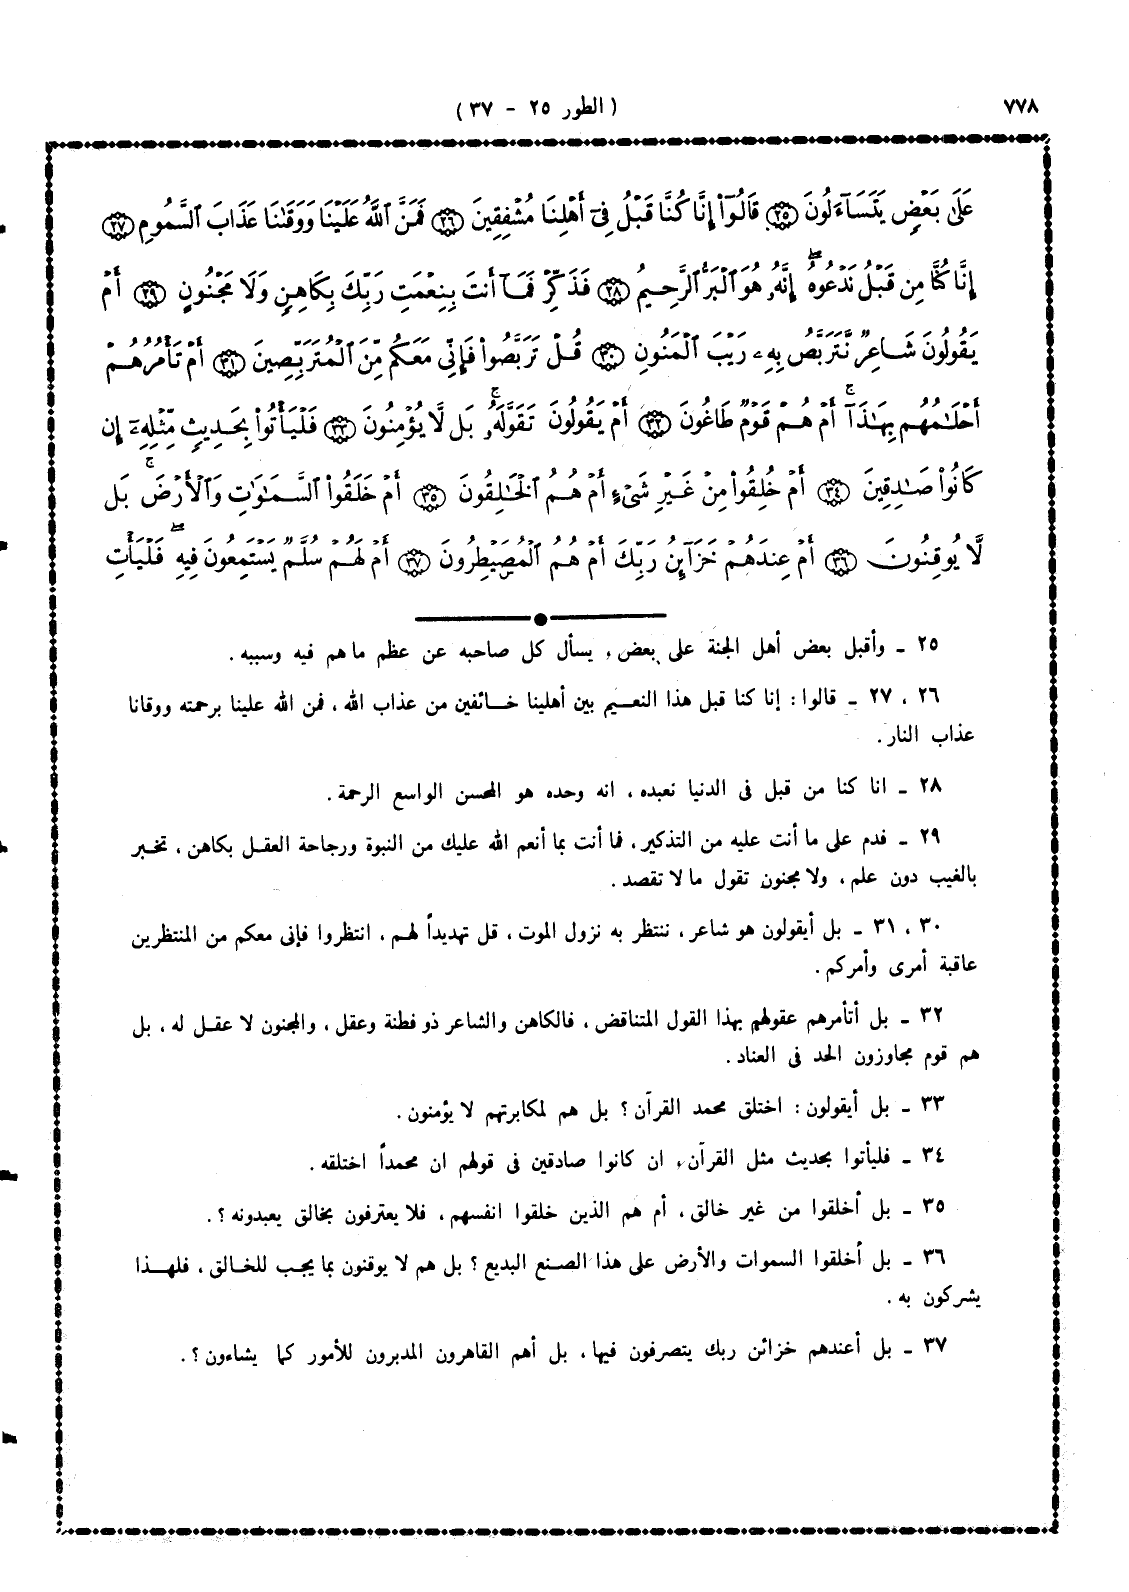 ٧٧٨
( الطور ٢٥ - ٣٧ )
عَلَىٰ بَعْضٍ يَتَسَآءَلُونَ ﴿٢٥﴾ قَالُوٓا۟ إِنَّا كُنَّا قَبْلُ فِىٓ أَهْلِنَا مُشْفِقِينَ ﴿٢٦﴾ فَمَنَّ ٱللَّهُ عَلَيْنَا وَوَقَىٰنَا عَذَابَ ٱلسَّمُومِ ﴿٢٧﴾
إِنَّا كُنَّا مِن قَبْلُ نَدْعُوهُ ۖ إِنَّهُۥ هُوَ ٱلْبَرُّ ٱلرَّحِيمُ ﴿٢٨﴾ فَذَكِّرْ فَمَآ أَنتَ بِنِعْمَتِ رَبِّكَ بِكَاهِنٍ وَلَا مَجْنُونٍ ﴿٢٩﴾ أَمْ
يَقُولُونَ شَاعِرٌ نَّتَرَبَّصُ بِهِۦ رَيْبَ ٱلْمَنُونِ ﴿٣٠﴾ قُلْ تَرَبَّصُوا۟ فَإِنِّى مَعَكُم مِّنَ ٱلْمُتَرَبِّصِينَ ﴿٣١﴾ أَمْ تَأْمُرُهُمْ
أَحْلَـٰمُهُم بِهَـٰذَآ ۚ أَمْ هُمْ قَوْمٌ طَاغُونَ ﴿٣٢﴾ أَمْ يَقُولُونَ تَقَوَّلَهُۥ ۚ بَل لَّا يُؤْمِنُونَ ﴿٣٣﴾ فَلْيَأْتُوا۟ بِحَدِيثٍ مِّثْلِهِۦٓ إِن
كَانُوا۟ صَـٰدِقِينَ ﴿٣٤﴾ أَمْ خُلِقُوا۟ مِنْ غَيْرِ شَىْءٍ أَمْ هُمُ ٱلْخَـٰلِقُونَ ﴿٣٥﴾ أَمْ خَلَقُوا۟ ٱلسَّمَـٰوَٰتِ وَٱلْأَرْضَ ۚ بَل
لَّا يُوقِنُونَ ﴿٣٦﴾ أَمْ عِندَهُمْ خَزَآئِنُ رَبِّكَ أَمْ هُمُ ٱلْمُصَۣيْطِرُونَ ﴿٣٧﴾ أَمْ لَهُمْ سُلَّمٌ يَسْتَمِعُونَ فِيهِ ۖ فَلْيَأْتِ
٢٥ ـ وأقبل بعض أهل الجنة على بعض، يسأل كل صاحبه عن عظم ما هم فيه وسببه .
٢٦ ، ٢٧ ـ قالوا : إنا كنا قبل هذا النعيم بين أهلينا خائفين من عذاب الله ، فمن الله علينا برحمته ووقانا
عذاب النار .
٢٨ ـ انا كنا من قبل فى الدنيا نعبده ، انه وحده هو المحسن الواسع الرحمة .
٢٩ ـ فدم على ما أنت عليه من التذكير ، فما أنت بما أنعم الله عليك من النبوة ورجاحة العقل بكاهن ، تخبر
بالغيب دون علم ، ولا مجنون تقول ما لا تقصد .
٣٠ ، ٣١ ـ بل أيقولون هو شاعر ، ننتظر به نزول الموت ، قل تهديداً لهم ، انتظروا فإنى معكم من المنتظرين
عاقبة أمرى وأمركم .
٣٢ ـ بل أتأمرهم عقولهم بهذا القول المتناقض ، فالكاهن والشاعر ذو فطنة وعقل ، والمجنون لا عقل له ، بل
هم قوم مجاوزون الحد فى العناد .
٣٣ ـ بل أيقولون : اختلق محمد القرآن ؟ بل هم لمكابرتهم لا يؤمنون .
٣٤ ـ فليأتوا بحديث مثل القرآن، ان كانوا صادقين فى قولهم ان محمداً اختلقه .
٣٥ ـ بل أخلقوا من غير خالق ، أم هم الذين خلقوا انفسهم ، فلا يعترفون بخالق يعبدونه ؟ .
٣٦ ـ بل أخلقوا السموات والأرض على هذا الصنع البديع ؟ بل هم لا يوقنون بما يجب للخالق ، فلهذا
يشركون به .
٣٧ ـ بل أعندهم خزائن ربك يتصرفون فيها ، بل أهم القاهرون المدبرون للأمور كما يشاءون ؟ .